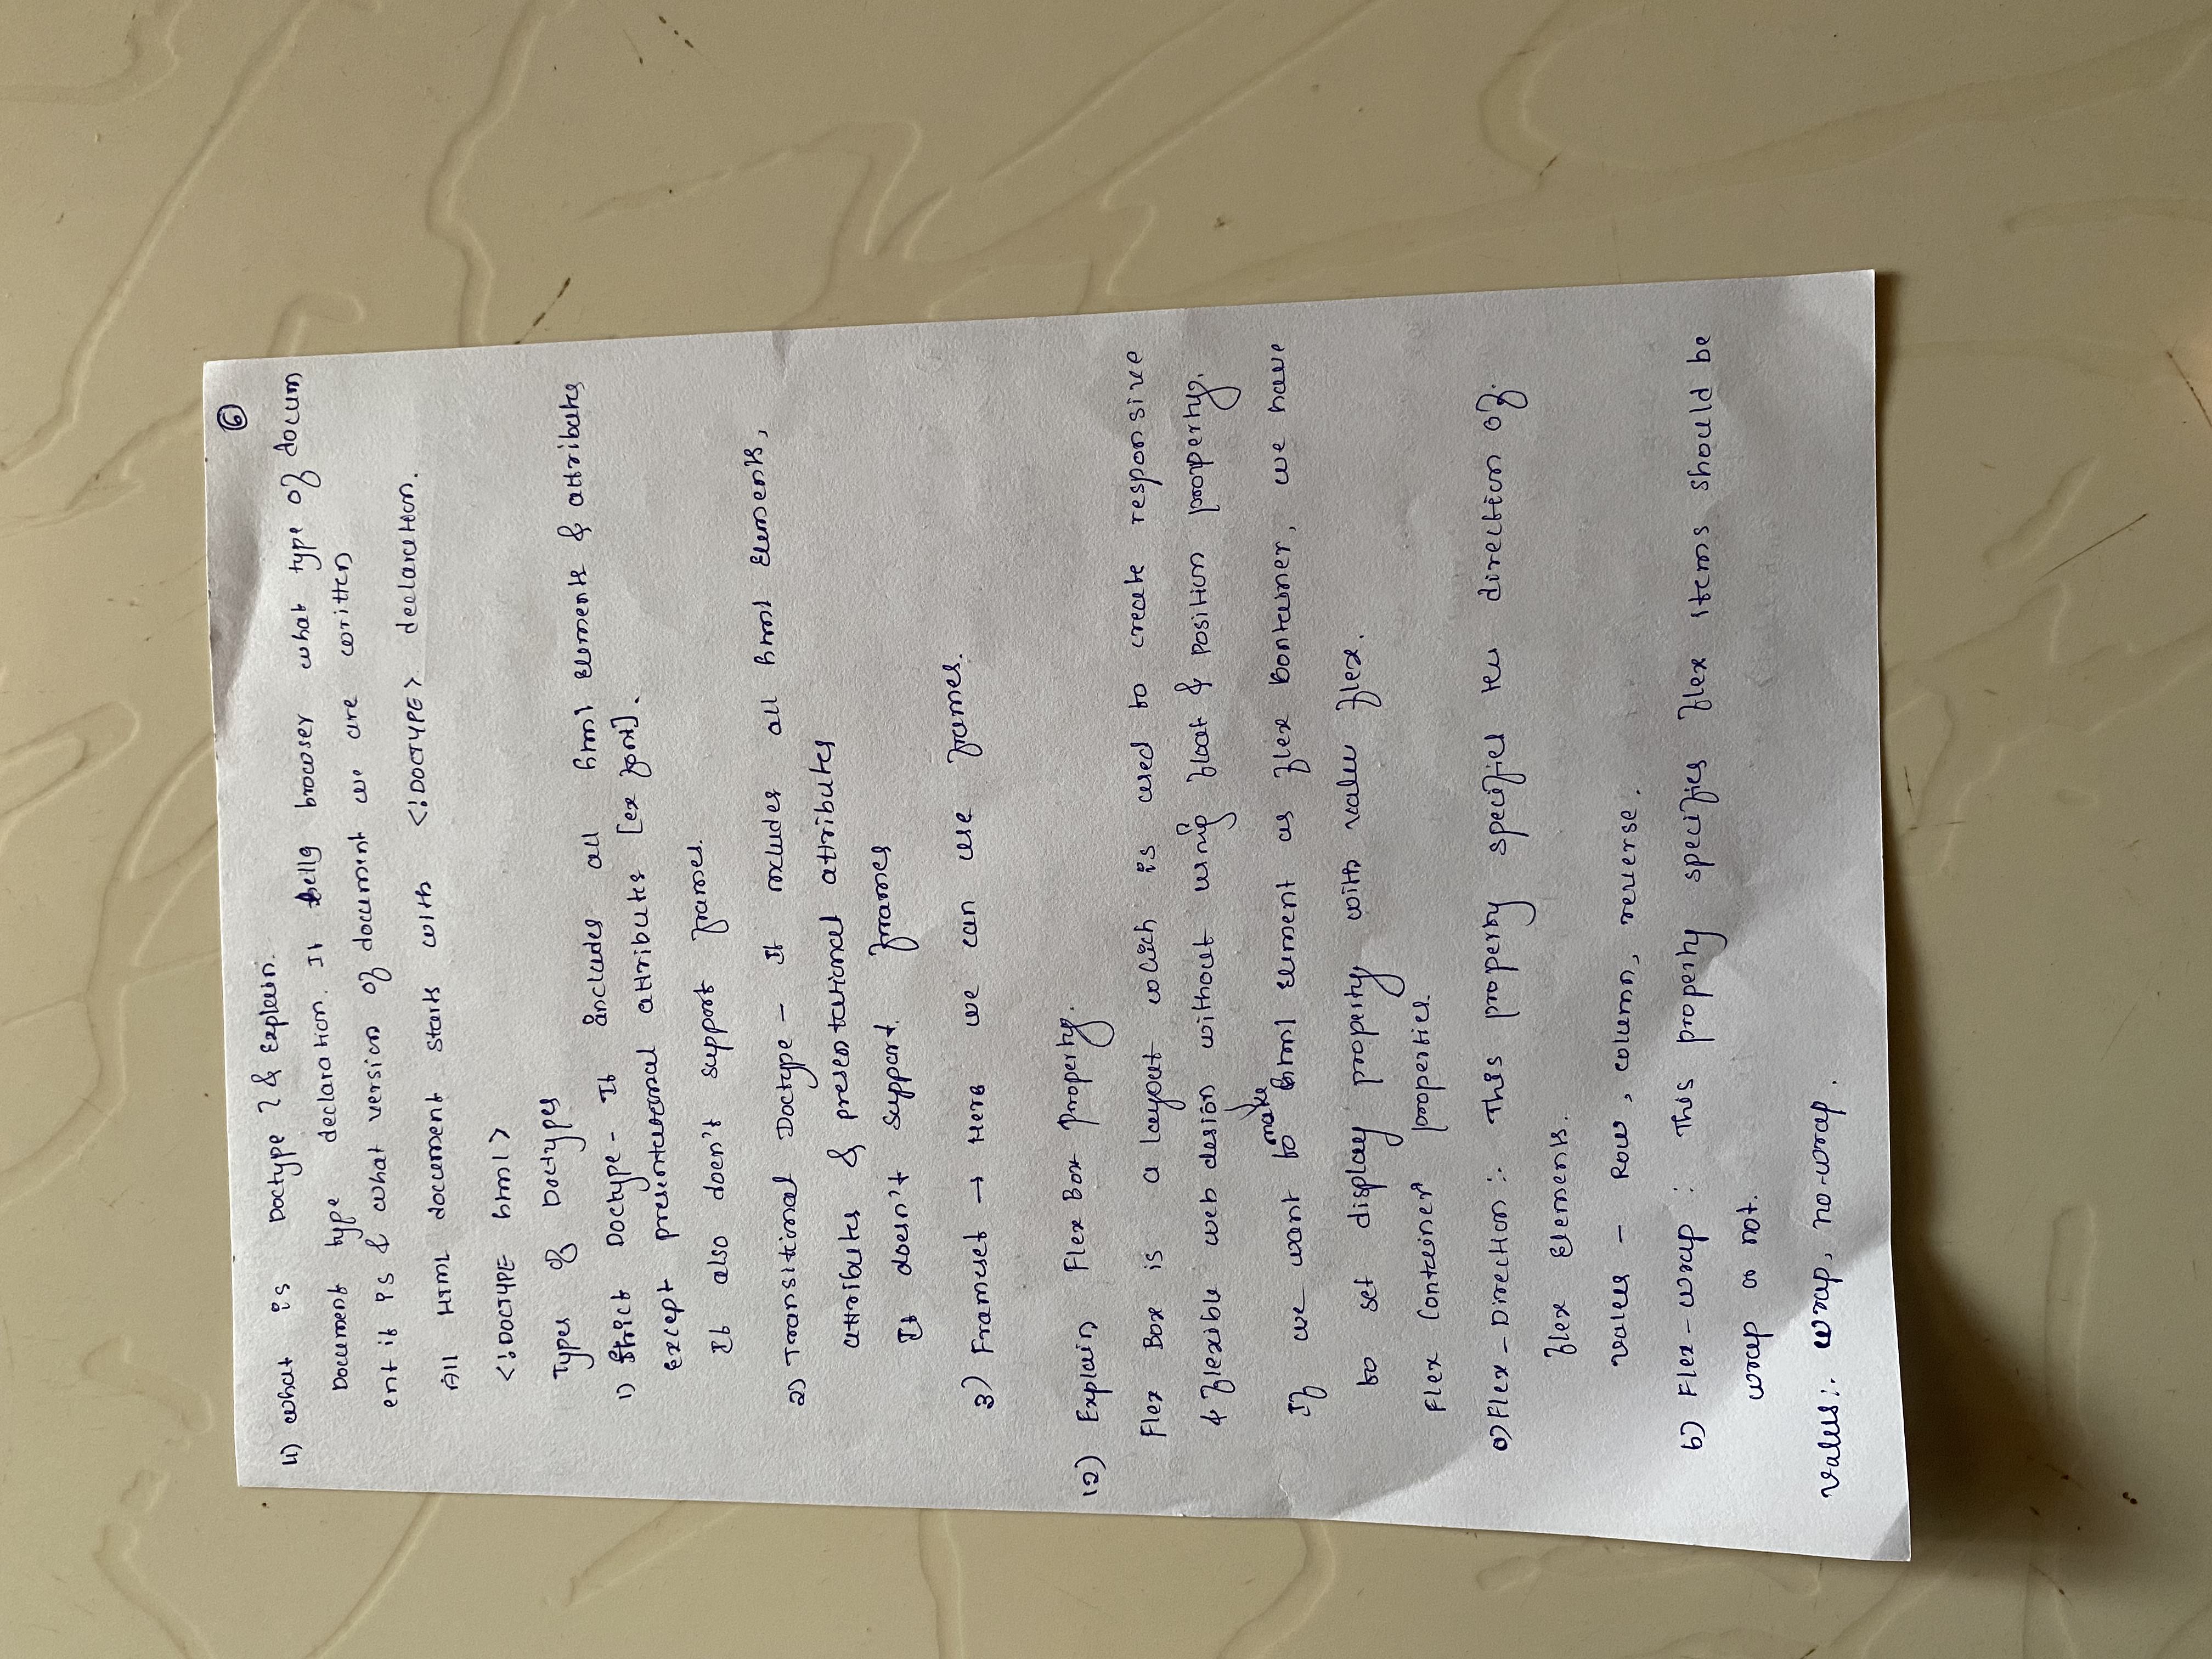 6
11) What is Doctype ? & Explain.
Document type declaration. It tells browser what type of docum
ent it is & what version of document we are written
All HTML document starts with <!DOCTYPE> declaration.
<!DOCTYPE html>
Types of Doctypes
1) Strict Doctype - It includes all html Elements & attributes
except presentational attributes [ex font].
It also doen't support frames.
2) Transitional Doctype - It includes all html Elements,
attributes & presentational attributes
It doesn't support. frames
3) Frameset → Here we can use frames.
12) Explain Flex Box Property.
Flex Box is a layout which is used to create responsive
& flexible web design without using float & position property.
make
If we want to html element as flex container, we have
to set display property with value flex.
Flex Container properties.
a) Flex - Direction :. This property specifies the direction of.
flex Elements.
values - Row, column, reverse.
b) Flex - wrap : This property specifies flex items should be
wrap or not.
Values:. wrap, no-wrap.